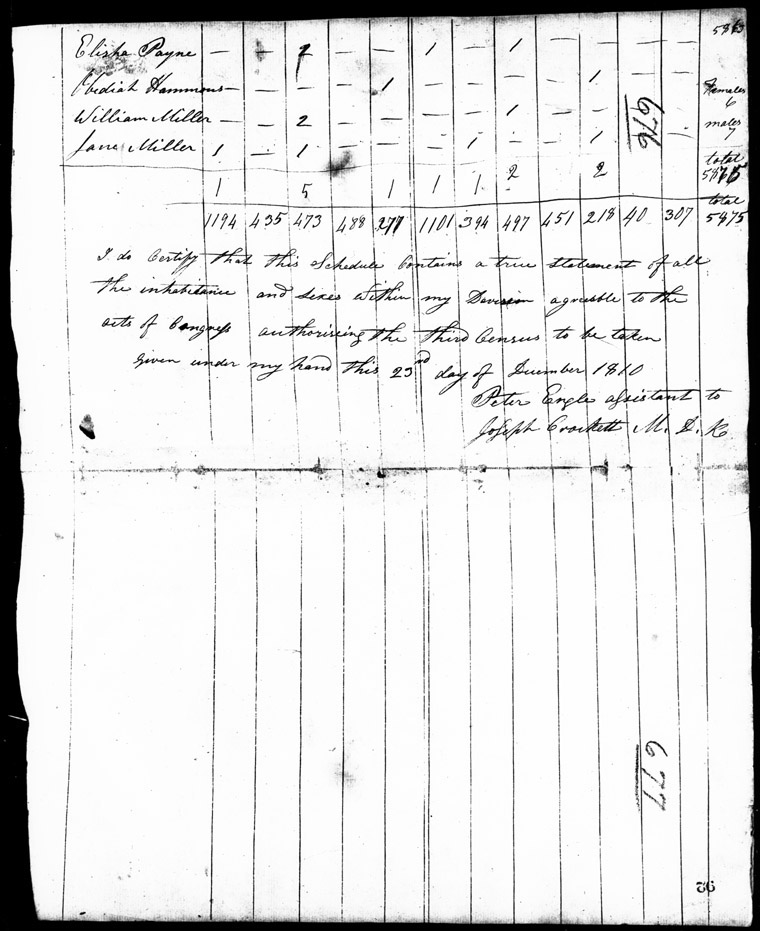 5863
Elisha Payne — — 2 — — 1 — 1 — — — —
Obediah Hammons — — — — 1 — — — — 1 — —
Females
6
William Miller — — 2 — — — — 1 — — — —
males
7
Jane Miller 1 — 1 — — — 1 — — 1 — —
676
total
1 5 1 1 1 2 2
total
1194 435 473 488 277 1101 394 497 451 218 40 307 5875
I do Certify that this Schedule Contains a true statement of all
the inhabitance and sexes within my Devision agreeble to the
acts of Congress authorising the third Census to be taken
Given under my hand this 23nd day of December 1810
Peter Engle assistant to
Joseph Crockett M. D. K
677